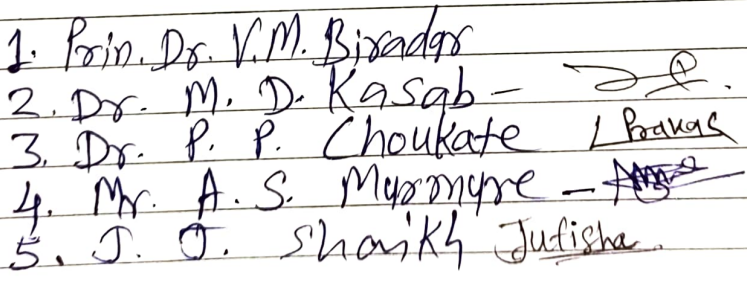 1. Prin. Dr. V.M. Biradar
2. Dr. M. D. Kasab -
3. Dr. P. P. Choukate
4. Mr. A. S. Murmure -
5. J. J. Shaikh